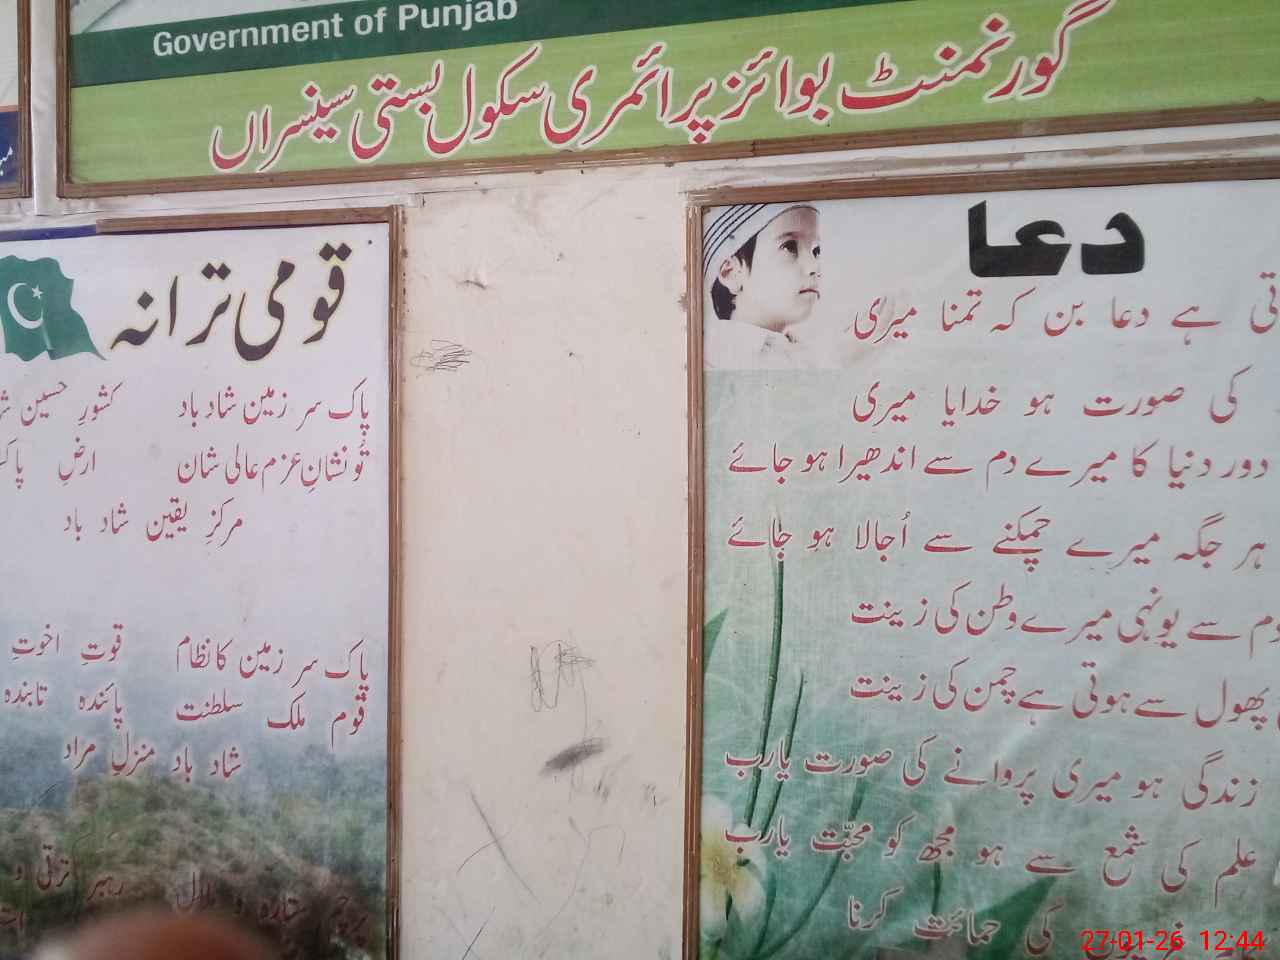 Government of Punjab
گورنمنٹ بوائز پرائمری سکول بستی سینسراں
قومی ترانہ
پاک سر زمین شاد باد کشورِ حسین
تُو نشانِ عزم عالی شان ارضِ
مرکزِ یقین شاد باد
پاک سر زمین کا نظام قوتِ اخوتِ
قوم ملک سلطنت پائندہ تابندہ
شاد باد منزلِ مراد
پرچم ستارہ و ہلال رہبر ترقی و
دعا
ہے دعا بن کہ تمنا میری
کی صورت ہو خدایا میری
دور دنیا کا میرے دم سے اندھیرا ہو جائے
ہر جگہ میرے چمکنے سے اُجالا ہو جائے
سے یونہی میرے وطن کی زینت
پھول سے ہوتی ہے چمن کی زینت
زندگی ہو میری پروانے کی صورت یارب
علم کی شمع سے ہو مجھ کو محبّت یارب
کی حمائت کرنا
27-01-26 12:44